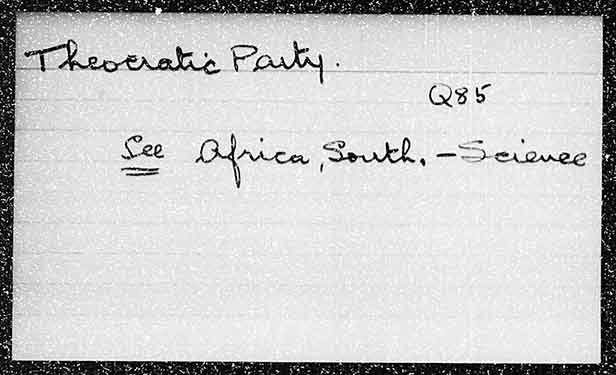 Theocratic Party.
Q85
See Africa, South. - Science